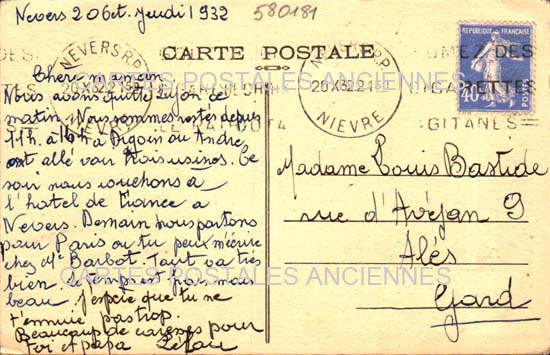 Nevers 20 Oct. Jeudi 1932
580181
CARTE POSTALE
Chère maman
Nous avons quitté Lyon ce
matin. Nous sommes restés depuis
11h. à 16h à Digoin ou André
est allé voir trois usines. Ce
soir nous couchons à
l'hôtel de France à
Nevers. Demain nous partons
pour Paris ou tu peux m'écrire
chez Me Barbot. Tout va très
bien. Le temps est frais mais
beau. J'espère que tu ne
t'ennuie pas trop.
Beaucoup de caresses pour
toi et papa
NEVERS RP
20 X 32
NIEVRE
NEVERS RP
20 X 32 21
NIEVRE
FUMEZ DES
GAZETTES
GITANES
REPUBLIQUE FRANÇAISE
40
POSTES
Madame Louis Bastide
rue d'Avéjan 9
Alés
Gard
CARTES POSTALES ANCIENNES
CARTES POSTALES ANCIENNES